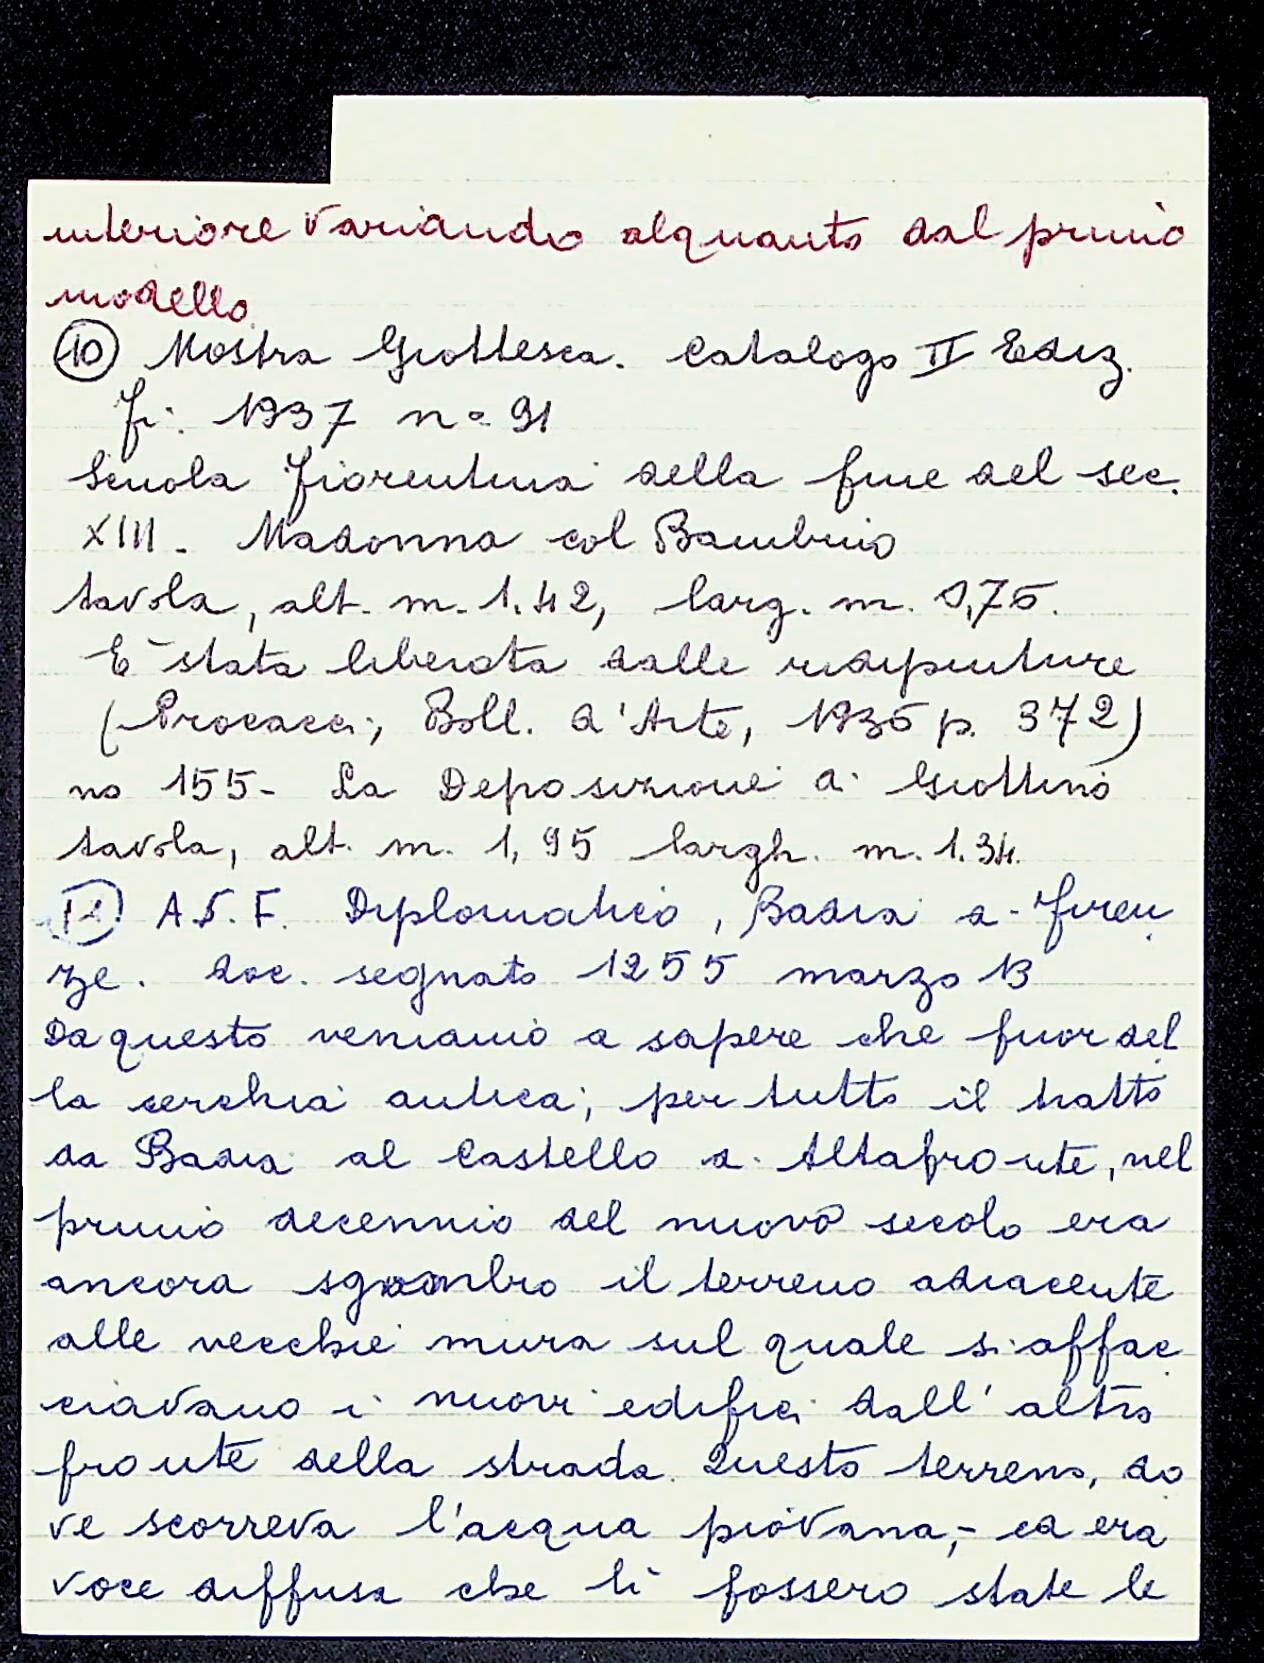 interiore variando alquanto dal primo
modello
10 Mostra Giottesca. Catalogo II Ediz.
Fi. 1937 n° 91
Scuola Fiorentina della fine del sec.
XIII. Madonna col Bambino
tavola, alt. m. 1.42, larg. m. 0,75.
E' stata liberata dalle ridipinture
(Procacci, Boll. d'Arte, 1935 p. 372)
no 155- La Deposizione di Giottino
tavola, alt. m. 1,95 largh. m. 1.34.
11 A.S.F. Diplomatico, Badia di Firen
ze. doc. segnato 1255 marzo 13
Da questo veniamo a sapere che fuor del
la cerchia antica, per tutto il tratto
da Badia al Castello di Altafronte, nel
primo decennio del nuovo secolo era
ancora sgombro il terreno adiacente
alle vecchie mura sul quale si affac
ciavano i nuovi edifici dall'altro
fronte della strada. Questo terreno, do
ve scorreva l'acqua piovana, - ed era
voce diffusa che lì fossero state le